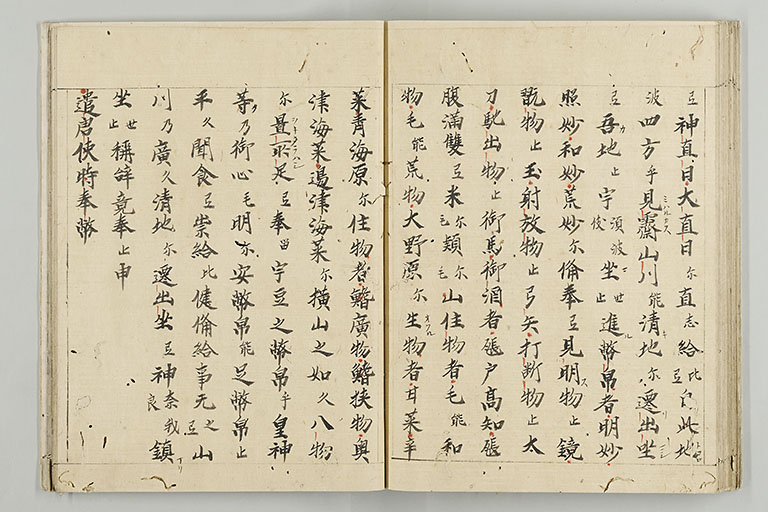 豆神直日大直日尓直志給比豆自此地
波四方乎見霽山川能清地尓遷出坐
豆吾地止宇須波伎坐世止進幣帛者明妙
照妙和妙荒妙尓俻奉豆見明物止鏡
翫物止玉射放物止弓矢打断物止太
刀馳出物止御馬御酒者𤭖戸高知𤭖
腹満雙豆米尓毛頴尓毛山住物者毛能和
物毛能荒物大野原尓生物者甘菜辛
菜青海原尓住物者鰭廣物鰭狭物奥
津海菜邊津海菜尓横山之如久八物
尓置所足豆奉留宇豆之幣帛乎皇神
等乃御心毛明尓安幣帛能足幣帛止
平久聞食豆崇給比健俻給事无之豆山
川乃廣久清地尓遷出坐豆神奈我良鎮
坐世止稱辞竟奉止申
遣唐使時奉幣